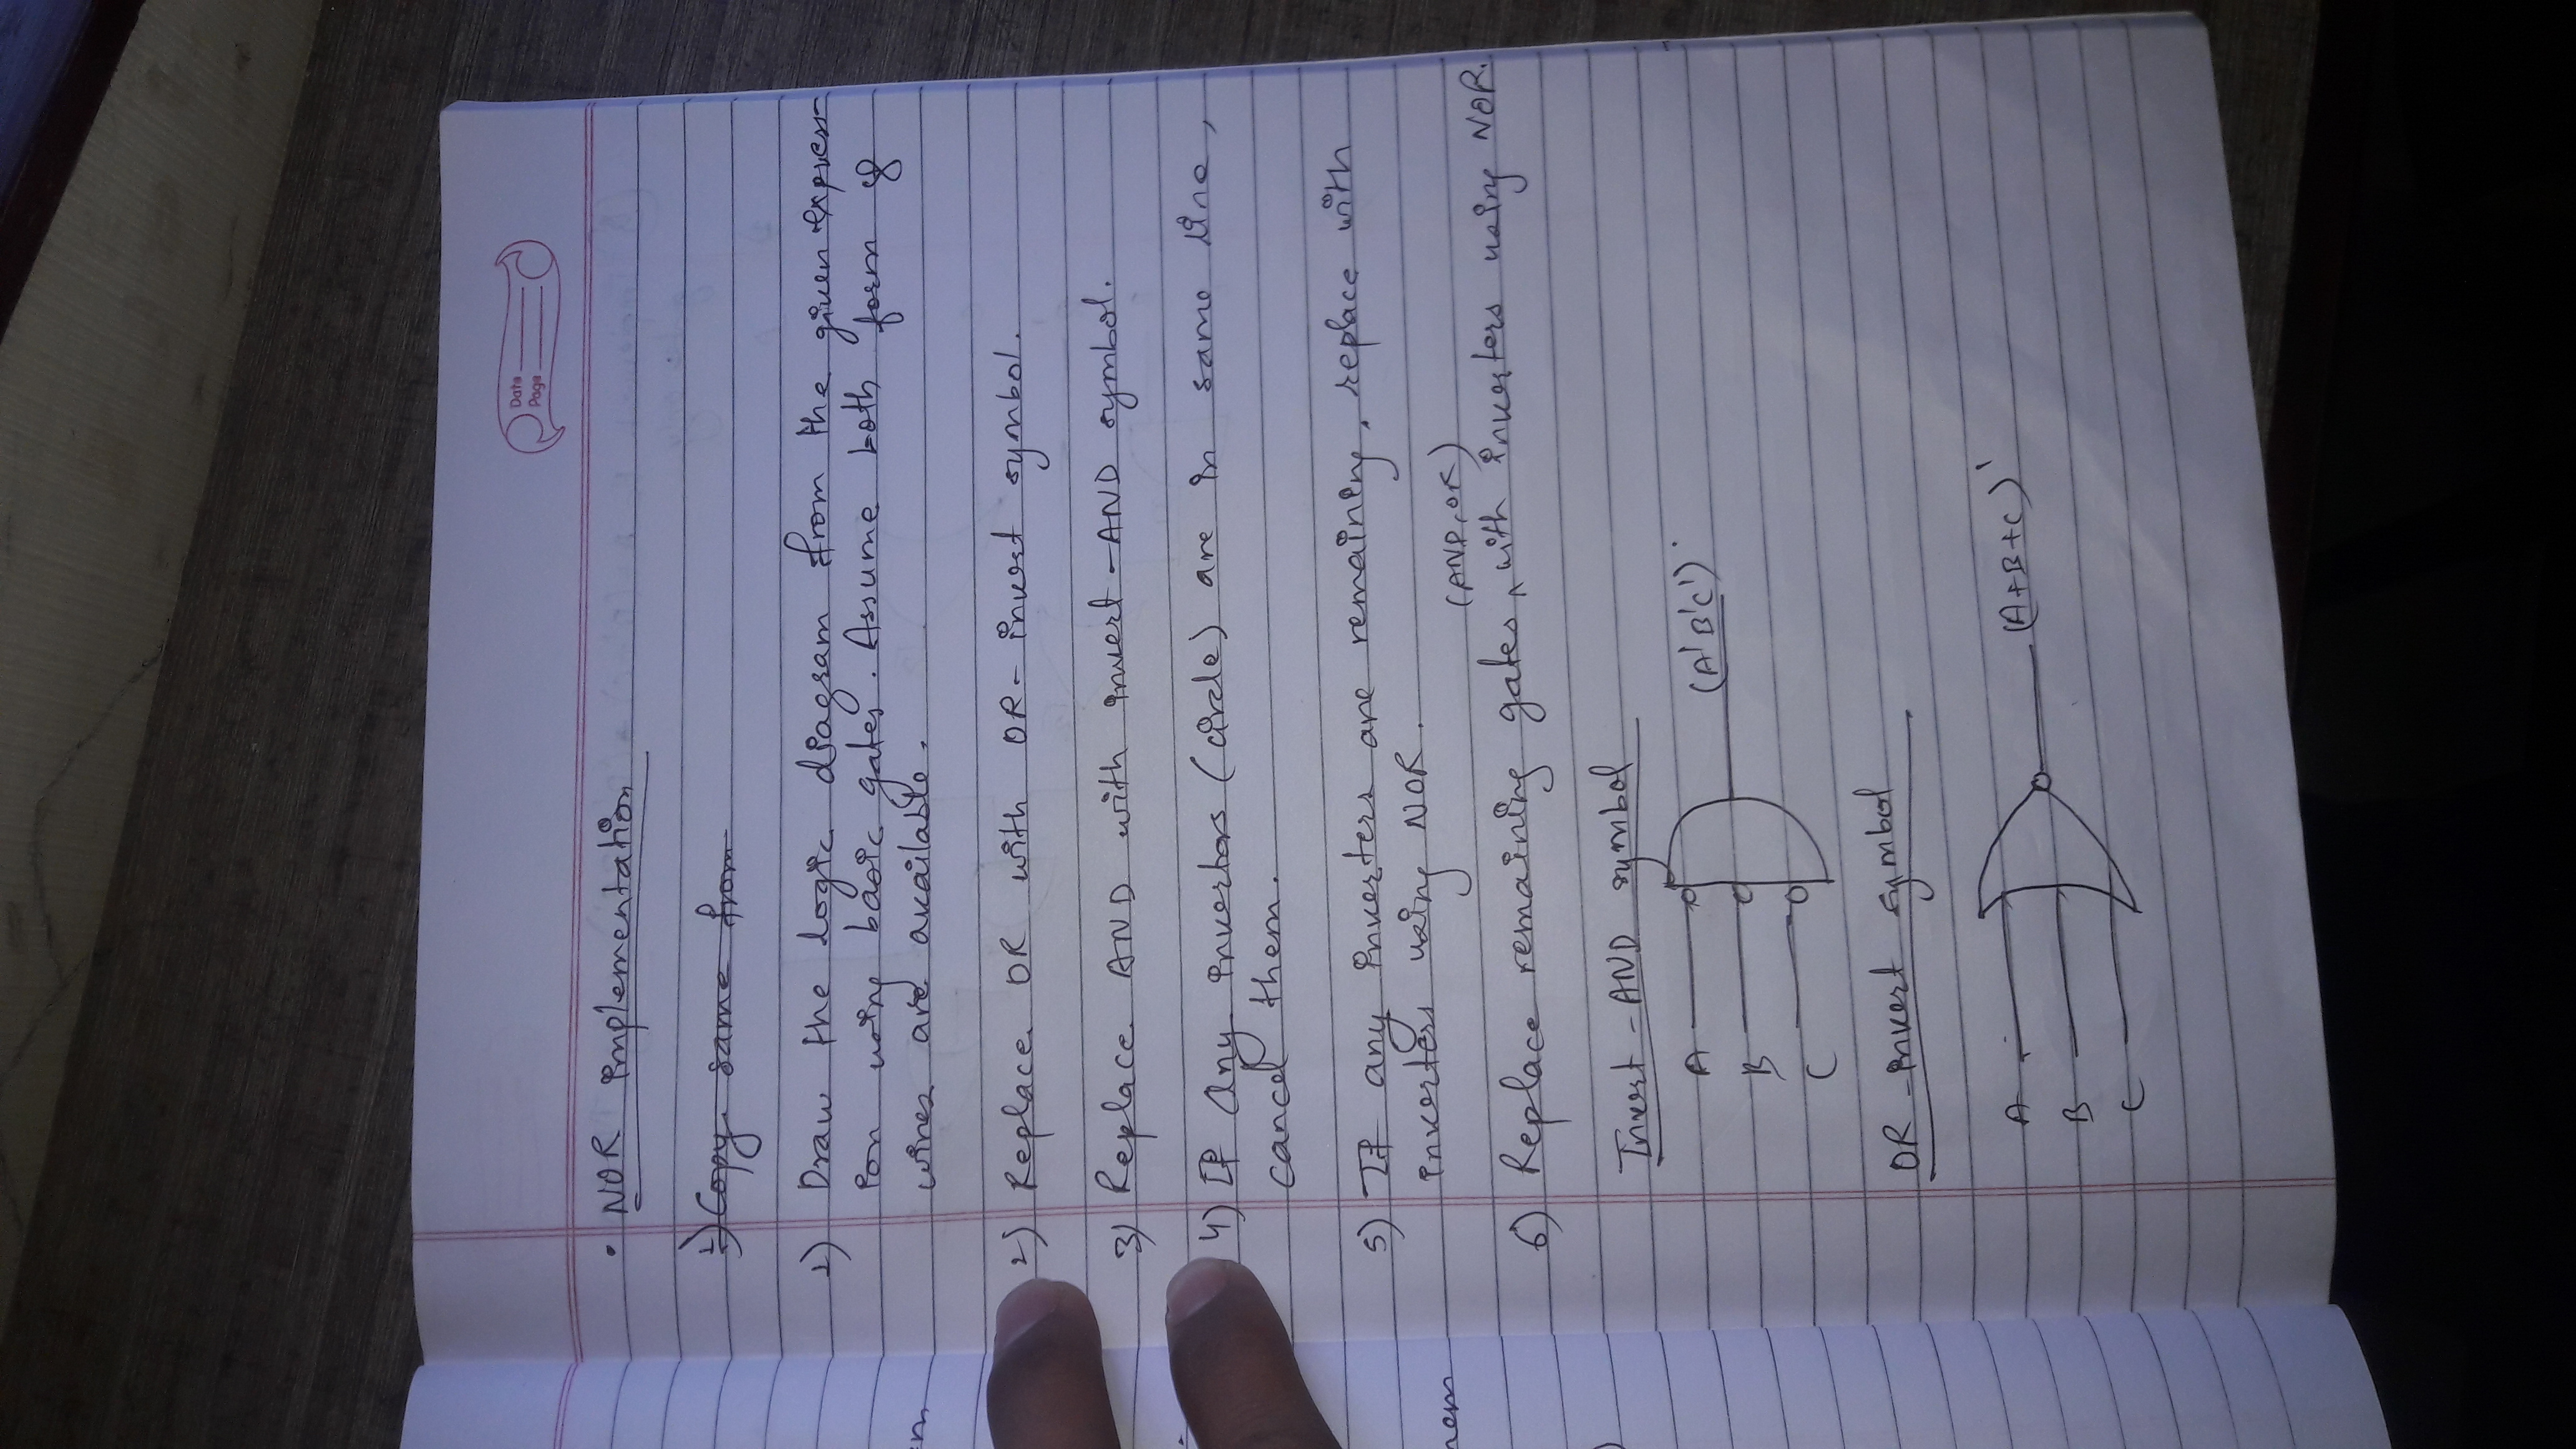 Date
Page
• NOR Implementation
1) Copy same from
1) Draw the logic diagram from the given express-
ion using basic gates. Assume both form of
wires are available.
2) Replace OR with OR-invert symbol.
3) Replace AND with invert-AND symbol.
4) If any invertors (circle) are in same line,
cancel them.
5) If any inverters are remaining, replace with
inverters using NOR.
(AND, OR)
6) Replace remaining gates ^ with inverters using NOR.
Invert-AND symbol
A
B
C
(A'B'C').
OR-invert symbol
A
B
C
(A+B+C)'
en
nem
)